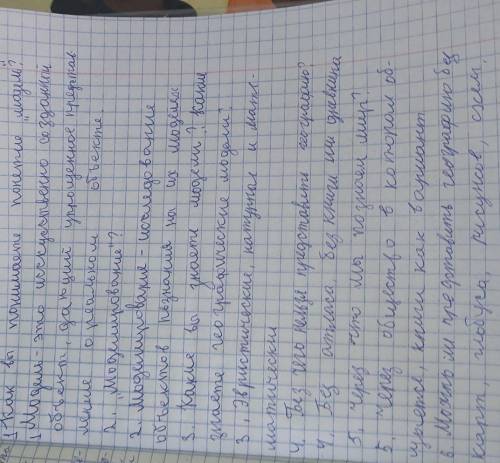 1 Как вы понимаете понятие "модель"?
1 Модель - это искусственно созданный
объект, дающий упрощенное представ
ление о реальном объекте
2. "Моделирование"?
2. Моделирование - исследование
объектов познания на их моделях
3. Какие вы знаете модели? Какие
знаете географические модели?
3. Эвристические, натурные и мате-
матические
4. Без чего нельзя представить географию?
4. Без атласа, без книги или учебника
5. Через что мы познаем мир?
5. Через общество в котором об-
щуемся, книги как вариант
6. Можно ли представить географию без
карт, глобуса, рисунков, схем,